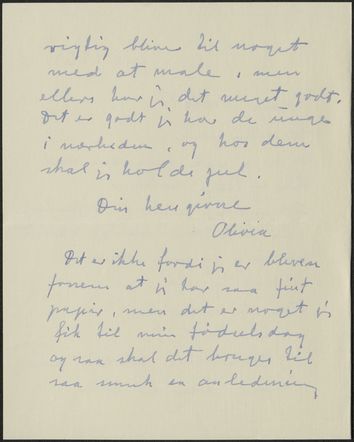 rigtig blive til noget
med at male, men
ellers har jeg det meget godt.
Det er godt jeg har de unge
i nærheden, og hos dem
skal jeg holde jul.
Din hengivne
Olivia
Det er ikke fordi jeg er bleven
fornem at jeg har saa fint
papir, men det er noget jeg
fik til min fødselsdag
og saa skal det bruges til
saa smuk en anledning